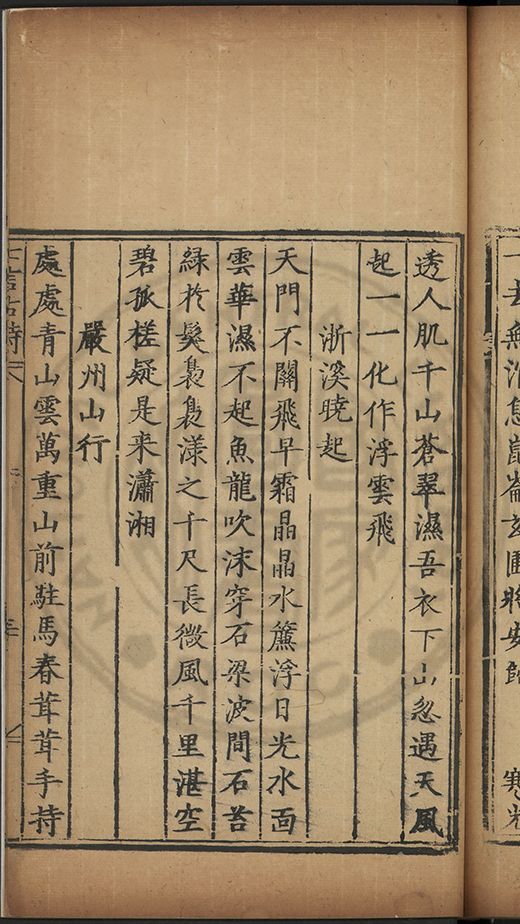 一去無消息崑崙玄圃將安歸 寒光
透人肌千山蒼翠濕吾衣下山忽遇天風
起一一化作浮雲飛
浙溪曉起
天門不關飛早霜晶晶水簾浮日光水面
雲華濕不起魚龍吹沫穿石梁波間石苔
綠於髮裊裊漾之千尺長微風千里湛空
碧孤槎疑是来瀟湘
嚴州山行
處處青山雲萬重山前駐馬春茸茸手持